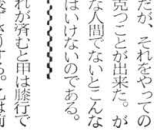 だが、それをやっての
克つことが出来た。が
な人間でないと、こんな
はいけないのである。
れが済むと甲は膝行で